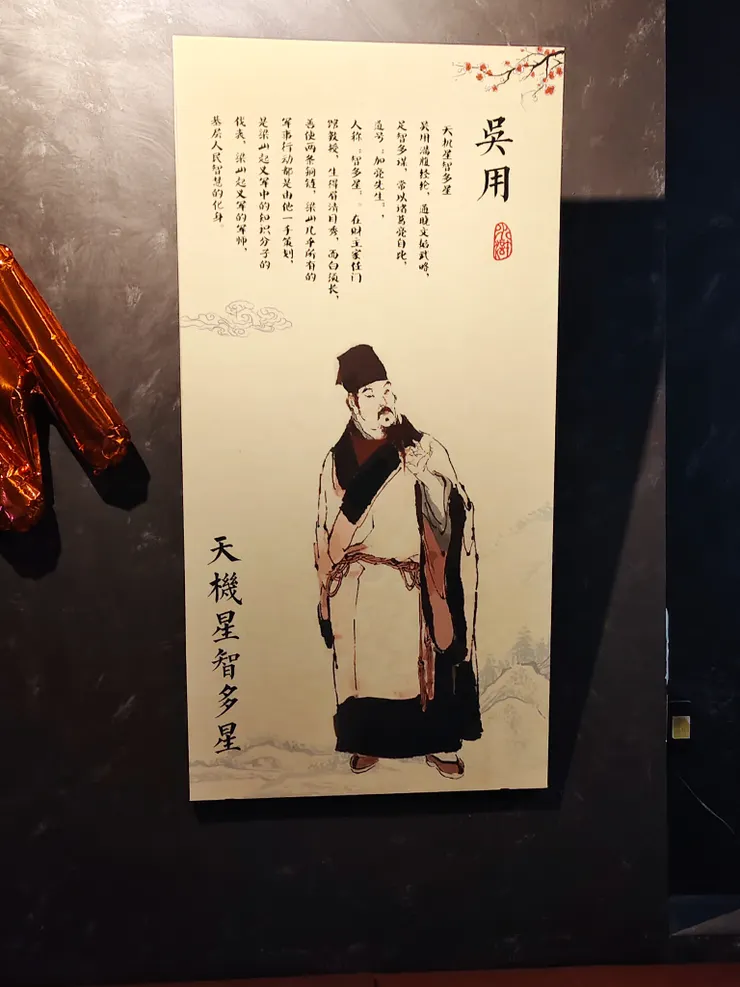 吳用
水滸
天机星智多星
吴用满腹经纶，通晓文韬武略，
足智多谋，常以诸葛亮自比，
道号：加亮先生，，
人称：智多星：。在财主家任门
馆教授，生得眉清目秀，面白须长，
善使两条铜链，梁山几乎所有的
军事行动都是由他一手策划，
是梁山起义军中的知识分子的
代表，梁山起义军的军师，
基层人民智慧的化身。
天機星智多星